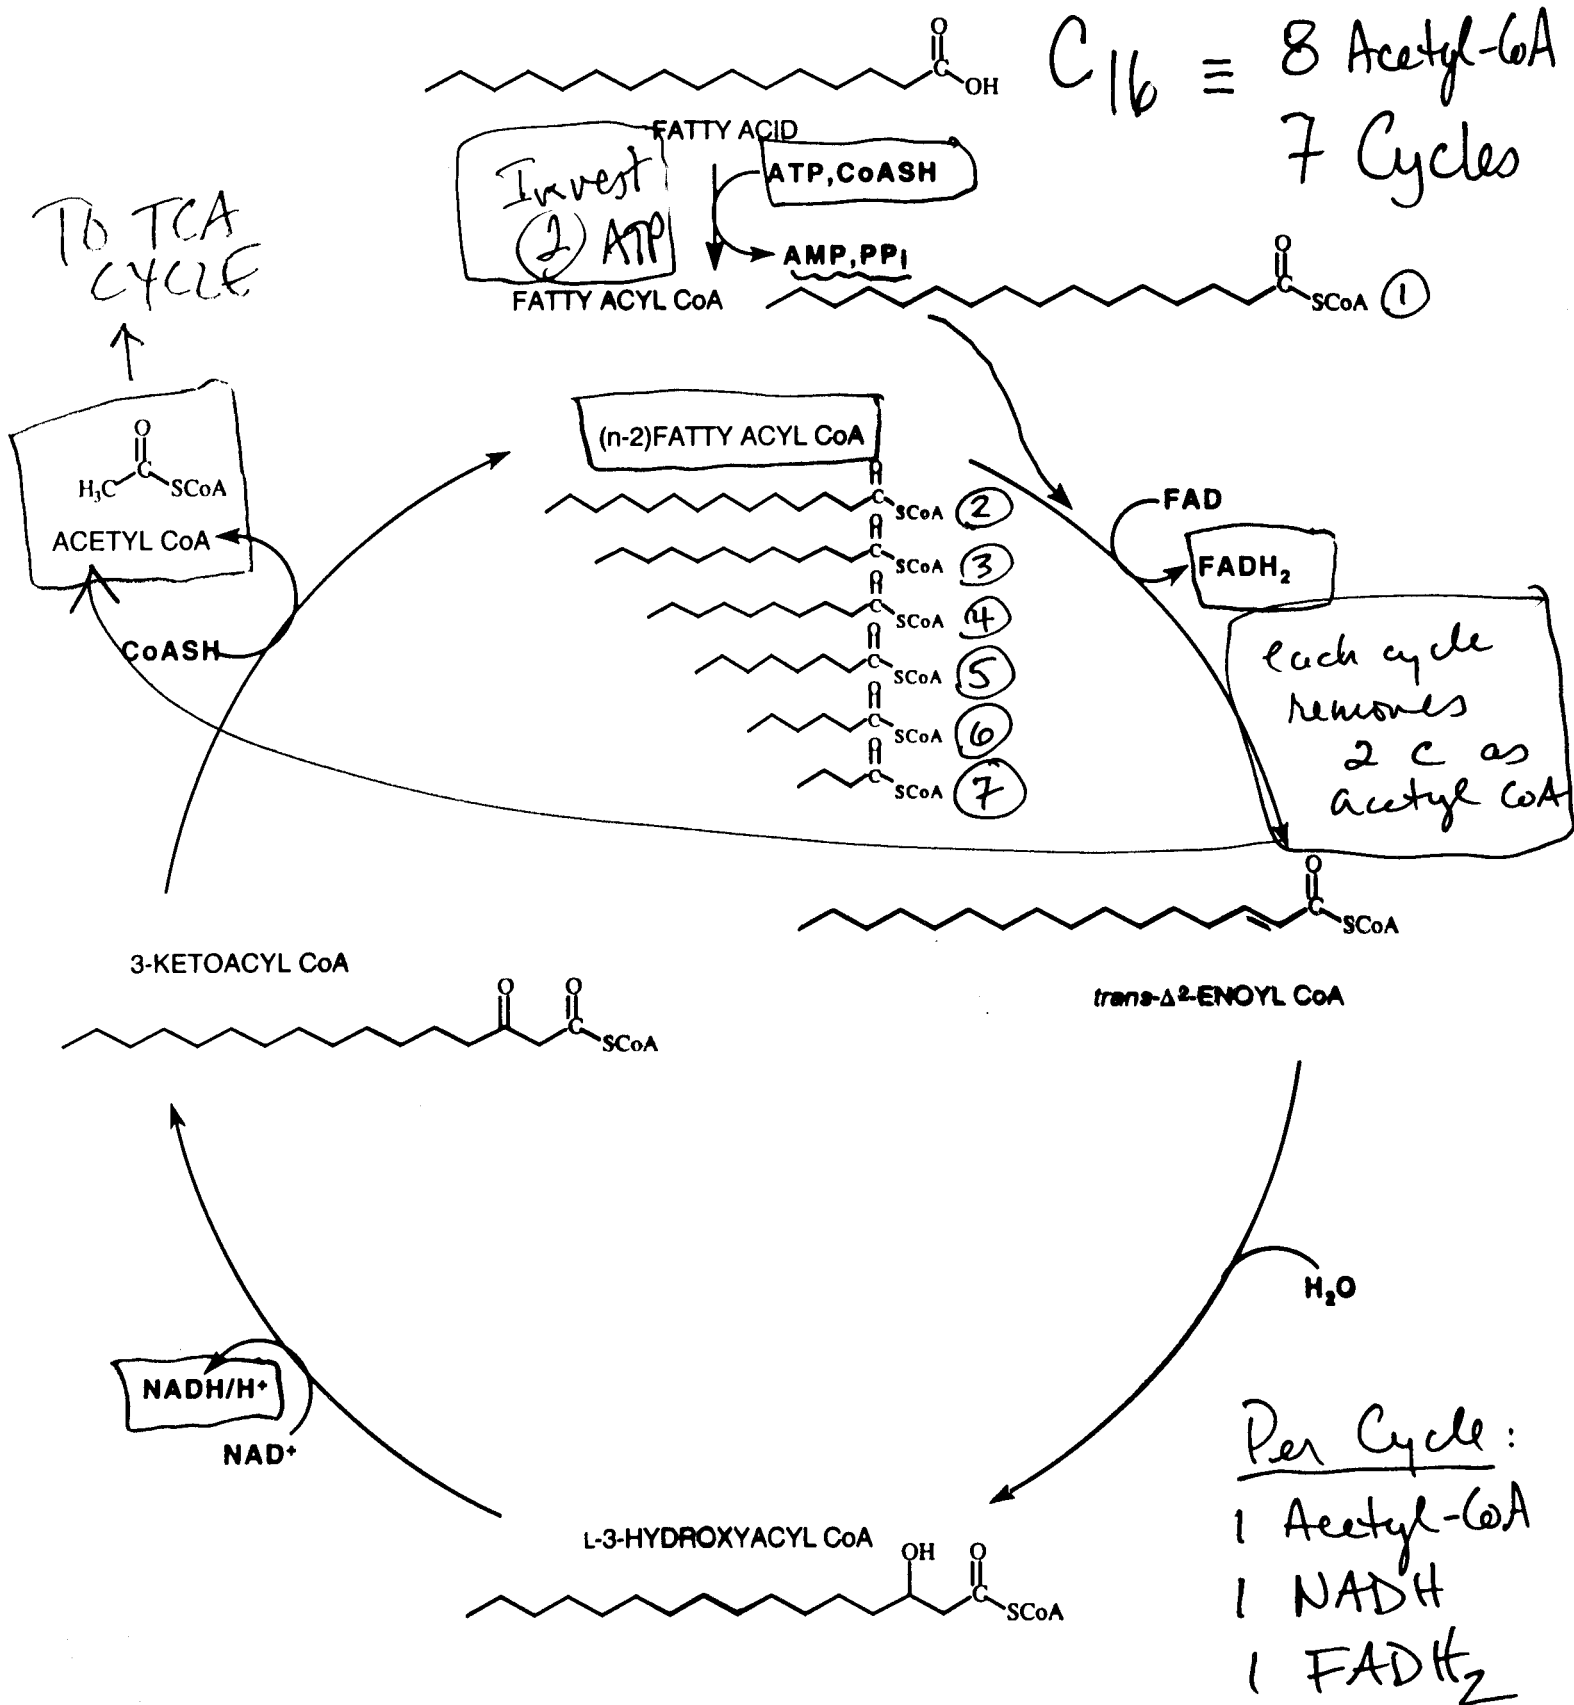 C16 ≡ 8 Acetyl-CoA
7 Cycles
O
C
OH
FATTY ACID
Invest
2 ATP
ATP,CoASH
AMP,PPi
FATTY ACYL CoA
O
C
SCoA
1
TO TCA
CYCLE
O
H3C C SCoA
ACETYL CoA
CoASH
(n-2)FATTY ACYL CoA
O
C SCoA 2
O
C SCoA 3
O
C SCoA 4
O
C SCoA 5
O
C SCoA 6
O
C SCoA 7
FAD
FADH2
each cycle
removes
2 C as
acetyl CoA
O
C
SCoA
trans-Δ2-ENOYL CoA
3-KETOACYL CoA
O O
C
SCoA
H2O
NADH/H+
NAD+
L-3-HYDROXYACYL CoA
OH O
C
SCoA
Per Cycle:
1 Acetyl-CoA
1 NADH
1 FADH2